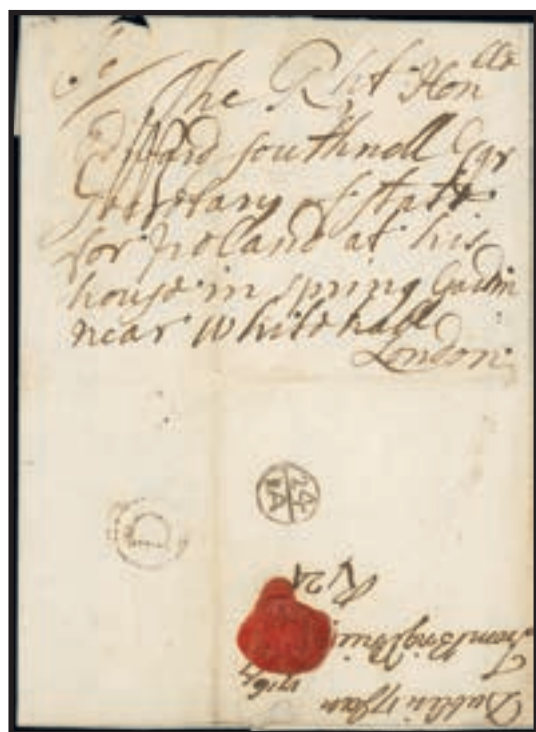 The Rht Honlle
Edward Southwell Esqr
Secretary of State
for Ireland at his
house in Spring Garden
near Whitehall
London
24
IA
Dublin 17 Jan
1716/7
R 24